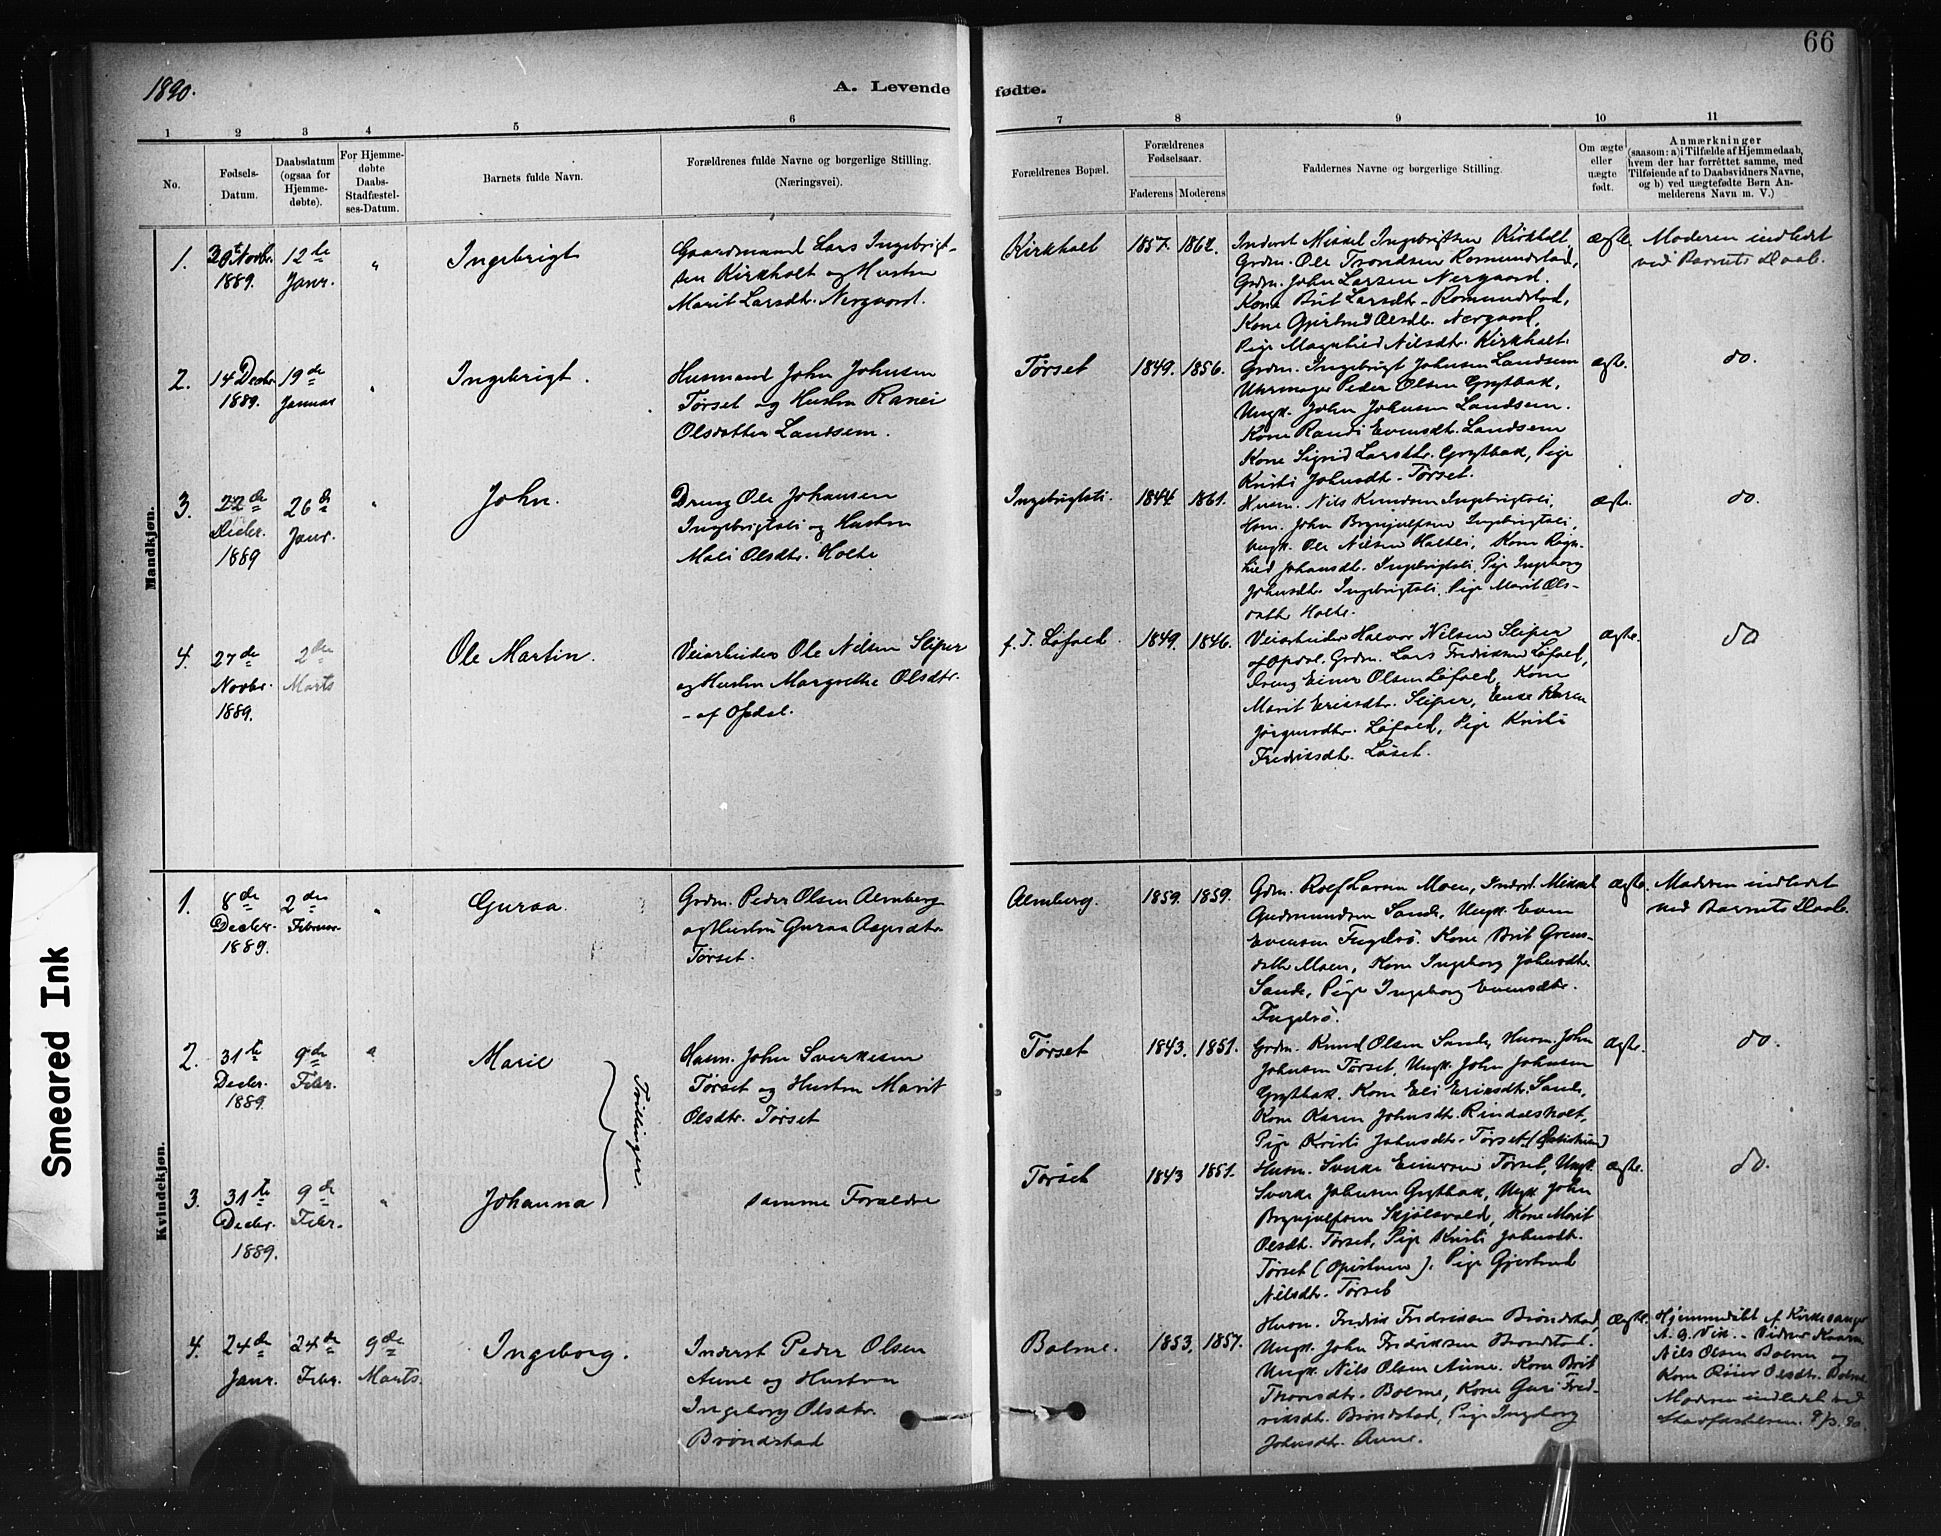 66
1890.
A. Levende fødte.
1 2 3 4 5 6 7 8 9 10 11
No.
Fødsels-
Datum.
Daabsdatum
(ogsaa for
Hjemme-
døbte).
For Hjemme-
døbte
Daabs-
Stadfæstel-
ses-Datum.
Barnets fulde Navn.
Forældrenes fulde Navne og borgerlige Stilling.
(Næringsvei).
Forældrenes Bopæl.
Forældrenes
Fødselsaar.
Faderens Moderens
Faddernes Navne og borgerlige Stilling.
Om ægte
eller
uægte
født.
Anmærkninger
(saasom: a) i Tilfælde af Hjemmedaab,
hvem der har forréttet samme, med
Tilføiende af to Daabsvidners Navne,
og b) ved uægtefødte Børn An-
melderens Navn m. V.)
Mandkjøn.
1.
Novbr.
1889.
12te
Janr.
"
Ingebrigt
Gaardmand Lars Ingebrigt-
sen Kirkholt og Hustru
Marit Larsdtr. Nergaard.
Kirkholt
1857. 1862.
Inderst Mikkel Ingebrigtsen Kirkholt,
Grdm. Ole Trondsen Romundstad,
Grdm. John Larsen Nergaard.
Kone Brit Larsdtr. Romundstad,
Kone Gjertrud Olsdtr. Nergaard,
Pige Magnhild Nilsdtr. Kirkholt.
ægte.
Moderen indledet
ved Barnets Daab.
2.
14 Decbr
1889.
19de
Januar
"
Ingebrigt.
Husmand John Johnsen
Tørset og Hustru Randi
Olsdatter Landsem.
Tørset
1849. 1856.
Grdm. Ingebrigt Johnsen Landsem
Uhrmager Peder Olsen Grytbak,
Ungk. John Johnsen Landsem.
Kone Randi Evensdtr. Landsem
Kone Sigrid Larsdtr. Grytbak, Pige
Kristi Johnsdtr. Tørset.
ægte.
do.
3.
22de
Decbr.
1889
26de
Janr.
"
John.
Dreng Ole Johansen
Ingebrigtsli og Hustru
Mali Olsdtr. Holte
Ingebrigtsli.
1844. 1861.
Husm. Nils Knudsen Ingebrigtsli,
Husm. John Brynjulfsen Ingebrigtsli,
Ungk. Ole Nilsen Holtli, Kone Ragn-
hild Johansdtr. Ingebrigtsli, Pige Ingeborg
Johnsdtr. Ingebrigtsli, Pige Marit Ols-
datter Holte.
ægte.
do.
4.
27de
Novbr.
1889.
2den
Marts
Ole Martin.
Veiarbeider Ole Nilsen Sliper
og Hustru Margrethe Olsdtr.
- af Opdal.
f. T. Løfald.
1849. 1846.
Veiarbeider Halvor Nilsen Sliper
af Opdal. Grdm. Lars Fredriksen Løfald,
Dreng Einar Olsen Løfald, Kone
Marit Eriksdtr. Sliper, Enke Karen
Jørgensdtr. Løfald, Pige Kristi
Fredriksdtr. Løset.
ægte.
do
Kvindekjøn.
1.
8de
Decbr.
1889.
2den
Februar.
"
Guraa
Grdm. Peder Olsen Almberg
og Hustru Guraa Aagesdtr.
Tørset.
Almberg.
1859. 1859.
Grdm. Rolf Larsen Moen, Inderst Mikkel
Gudmundsen Sande, Ungk. Even
Evensen Fugelsö. Kone Brit Grens-
datter Moen, Kone Ingeborg Johnsdtr.
Sande, Pige Ingeborg Evensdtr.
Fugelsö.
ægte.
Moderen indledet
ved Barnets Daab.
2.
31te
Decbr.
1889.
9de
Febr.
"
Marie
Husm. John Sverkesen
Tørset og Hustru Marit
Olsdtr. Tørset
Tørset
1843. 1851.
Grdm. Knud Olsen Sande, Husm. John
Johnsen Tørset, Ungk. John Johnsen
Grytbak. Kone Eli Eriksdtr. Sande,
Kone Karen Johnsdtr. Rindalsholt,
Pige Kristi Johnsdtr. Tørset
ægte.
do.
Tvillinger.
3.
31te
Decbr.
1889.
9de
Febr.
"
Johanna
samme Forældre
Tørset
1843 1851.
Husm. Sverke Einersen Tørset, Ungk.
Sverke Johnsen Grytbak, Ungk. John
Brynjulfsen Skjølsvold, Kone Marit
Olsdtr. Tørset, Pige Kristi Johnsdtr.
Tørset Pige Gjertrud
Nilsdtr. Tørset
ægte.
do.
4.
24de
Janr.
24de
Febr.
9de
Marts.
Ingeborg.
Inderst Peder Olsen
Aune og Hustru
Ingeborg Olsdtr.
Brøndstad
Bolme.
1853. 1857.
Husm. Fredrik Fredriksen Brøndstad,
Ungk. John Fredriksen Brøndstad.
Ungk. Nils Olsen Aune. Kone Brit
Thomsdtr. Bolme, Kone Guri Fred-
riksdtr. Brøndstad, Pige Ingeborg
Johnsdtr. Aune.
ægte.
Hjemmedøbt af Kirkesanger
Nils Olsen Bolme og
Kone Olsdtr. Bolme
Moderen indledet ved
Stadfæstelsen. 9/3. 90.
Smeared Ink